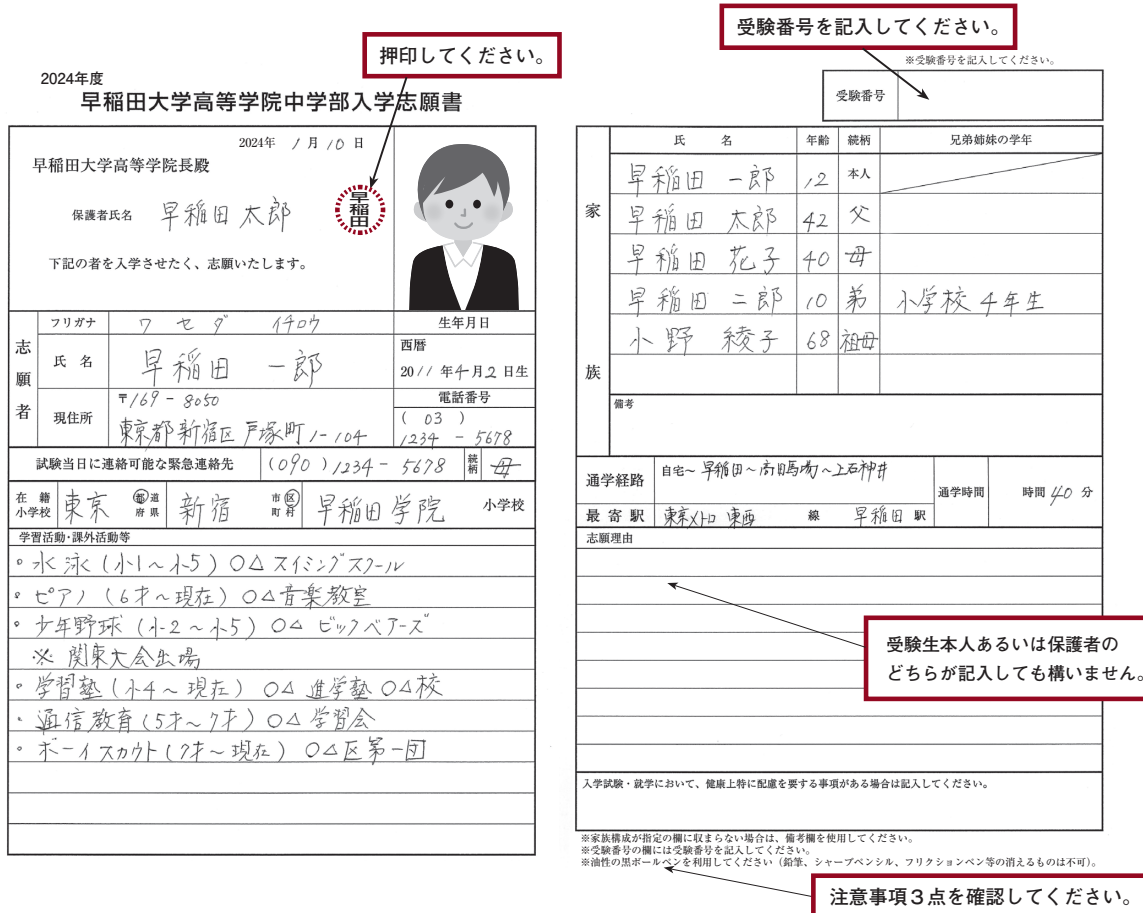 押印してください。
受験番号を記入してください。
※受験番号を記入してください。
受験番号
2024年度
早稲田大学高等学院中学部入学志願書
2024年 1月10日
早稲田大学高等学院長殿
保護者氏名 早稲田 太郎
早稲田
下記の者を入学させたく、志願いたします。
志願者
フリガナ ワセダ イチロウ
生年月日
氏名 早稲田 一郎
西暦
2011年4月2日生
現住所
〒169-8050
東京都新宿区戸塚町1-104
電話番号
(03)
1234-5678
試験当日に連絡可能な緊急連絡先 (090)1234-5678 続柄 母
在籍小学校 東京 都道府県 新宿 市区町村 早稲田学院 小学校
学習活動・課外活動等
。水泳(小1~小5) ○△スイミングスクール
。ピアノ(6才~現在) ○△音楽教室
。少年野球(小2~小5) ○△ ビックベアーズ
※ 関東大会出場
。学習塾(小4~現在) ○△ 進学塾 ○△校
。通信教育(5才~7才) ○△ 学習会
。ボーイスカウト(7才~現在) ○△区第一団
家族
氏名 年齢 続柄 兄弟姉妹の学年
早稲田 一郎 12 本人
早稲田 太郎 42 父
早稲田 花子 40 母
早稲田 二郎 10 弟 小学校4年生
小野 綾子 68 祖母
備考
通学経路 自宅~早稲田~高田馬場~上石神井 通学時間 時間40分
最寄駅 東京メトロ 東西 線 早稲田 駅
志願理由
受験生本人あるいは保護者の
どちらが記入しても構いません。
入学試験・就学において、健康上特に配慮を要する事項がある場合は記入してください。
※家族構成が指定の欄に収まらない場合は、備考欄を使用してください。
※受験番号の欄には受験番号を記入してください。
※油性の黒ボールペンを利用してください(鉛筆、シャープペンシル、フリクションペン等の消えるものは不可)。
注意事項3点を確認してください。